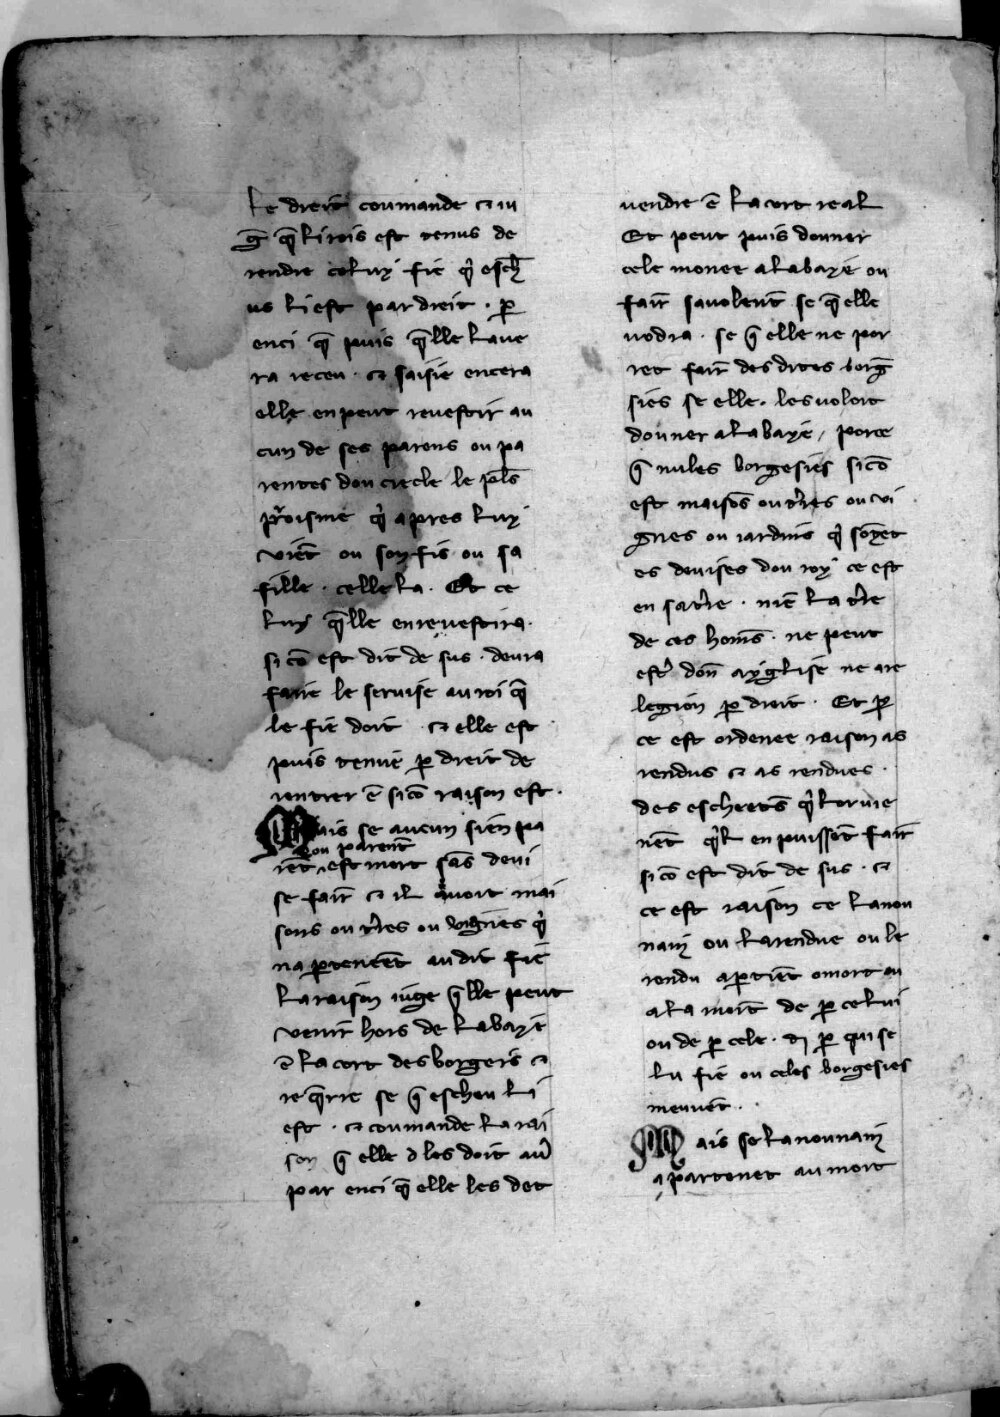 le dreit coumande ⁊ iu
g̃ q̃ li rois est tenus de
rendre celuy fie q̃ esch̃
us li est par dreit · ꝑ
enci q̃ puis q̃lle laue
ra receu · ⁊ saisie encera
elle en peut reuestir au
cun de ses parens ou pa
rentes dou ciecle le pl̃s
p̃roisme q̃ apres luy
viẽt ou son fis ou sa
fille · celle la · Et ce
luy q̃lle en reuestira ·
si cõ est dit de sus · deura
faire le seruise au roi q̃
le fie doit · ⁊ elle est
puis tenue ꝑ dreit de
rentrer ẽ si cõ raison est ·
Mais se aucun sien pa
rẽt ou parent est mort sãs deui
se fair̃ ⁊ il auoit mai
sons ou t̃res ou vignes q̃
na ꝑtenẽt au dit fie
la raison iuge q̃lle peut
venir hors de labaye
ẽ la cort des borgeis ⁊
req̃rre se q̃ escheu li
est · ⁊ coumande la rai
son q̃ elle d les doit au̾
par enci q̃ elle les det
vendre ẽ la cort real
Et peut puis donner
cele monee a labaye ou
fair̃ sa volent̃ se q̃ elle
vodra · se q̃ elle ne por
ret fair̃ des dites borg̃
sies se elle · les voloit
donner a labaye / porce
q̃ nules borgesies si cõ
est maisõs ou t̃res ou vi
gnes ou iardins q̃ soyẽt
es deuises dou roy ce est
en sa t̃re · niẽ la t̃re
de ces hom̃s · ne peut
est̃ doñ a yglise ne a re
legion ꝑ dreit · Et ꝑ
ce est ordenee raison as
rendus ⁊ as rendues ·
des escheetes q̃ lor vie
nẽt q̃l en puissẽt fair̃
si cõ est dit de sus · ⁊
ce est raison ce la nou
nain ou la rendue ou le
rendu aꝑtiẽt o mort ou
a la mort̃ de ꝑ celui
ou de ꝑ cele · d ꝑ qui se
lu fie ou celes borgesies
meuuẽt ·
Mais se la nounain
apartenet au mort